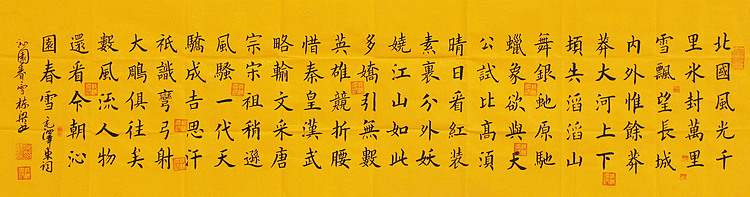 北國風光千
里氷封萬里
雪飄望長城
内外惟餘莽
莽大河上下
頓失滔滔山
舞銀蛇原馳
蠟象欲與天
公試比高須
晴日看紅装
素裹分外妖
嬈江山如此
多嬌引無數
英雄競折腰
惜秦皇漢武
略輸文采唐
宗宋祖稍遜
風騷一代天
驕成吉思汗
祇識彎弓射
大鵰俱往矣
數風流人物
還看今朝沁
園春雪毛澤東詞
沁園春雪